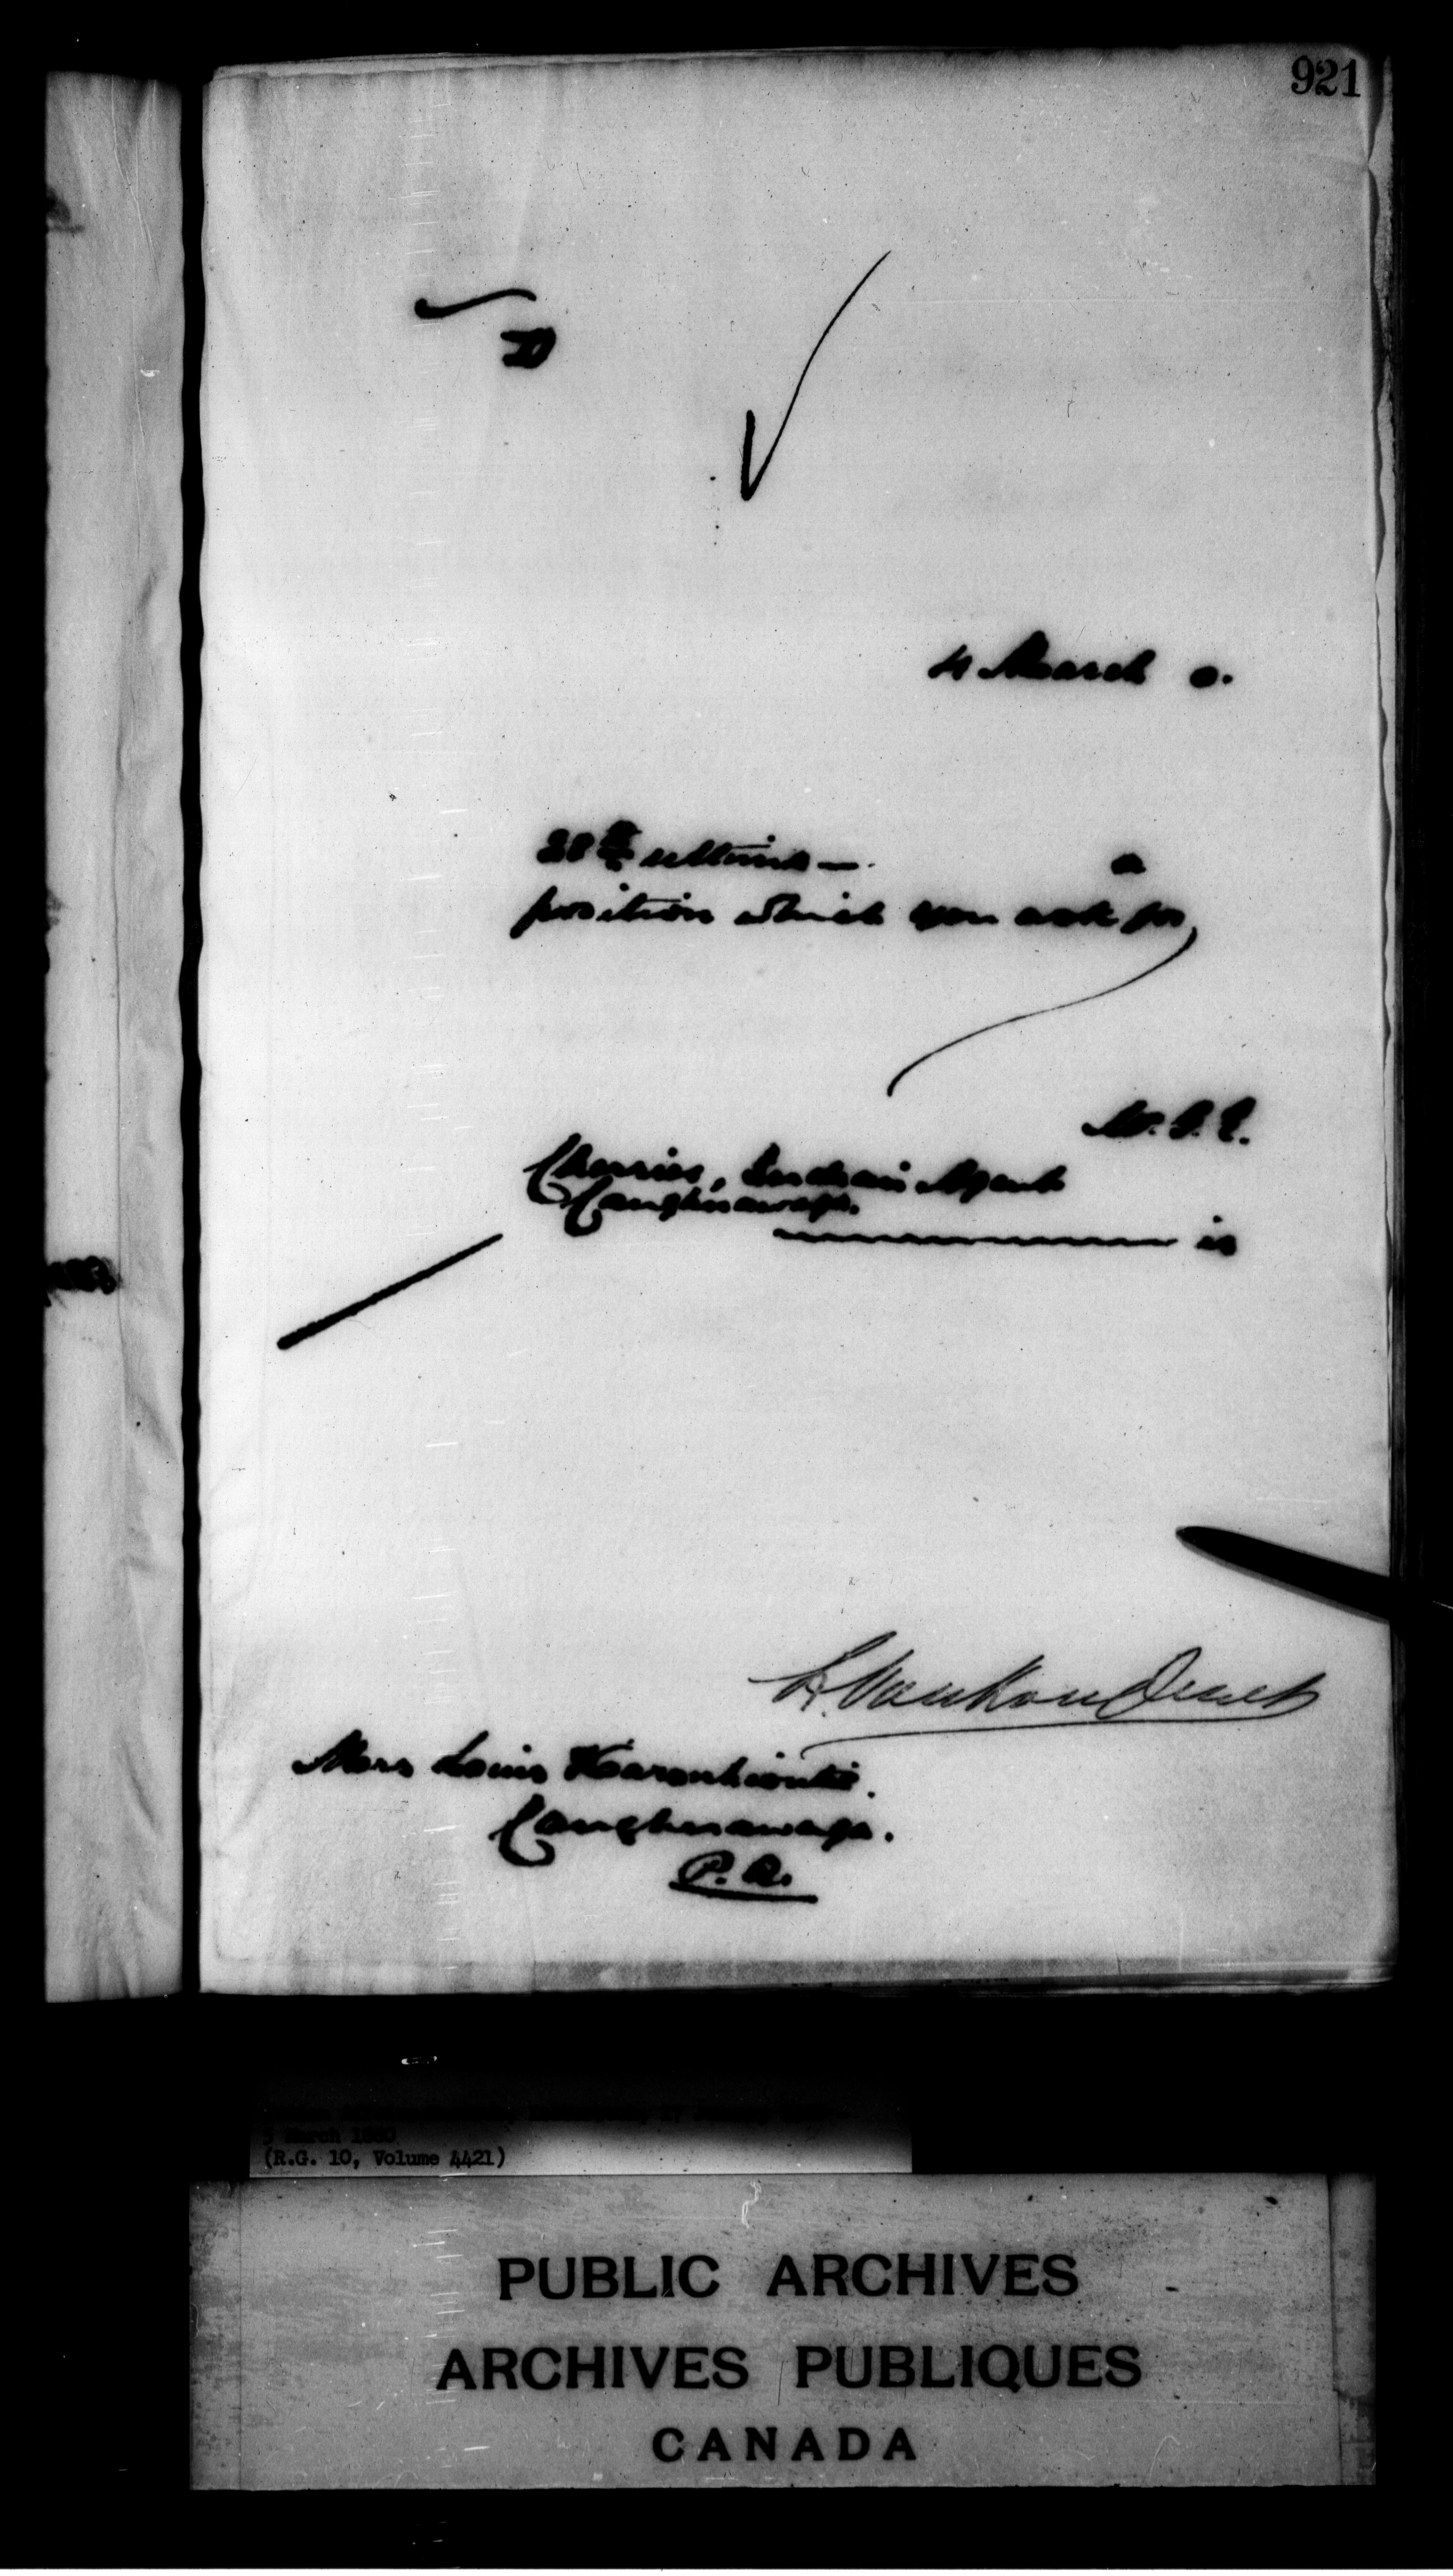 921
D
4 March 0.
28th ultimo —
a
position which you ask for
W. J. E.
Cherrier, Indian Agent
Caughnawaga.
is
L. VanKoughnet
Mors Louis Karonhionte.
Caughnawaga.
P.Q.
3 March 1880
(R.G. 10, Volume 4421)
PUBLIC ARCHIVES
ARCHIVES PUBLIQUES
CANADA